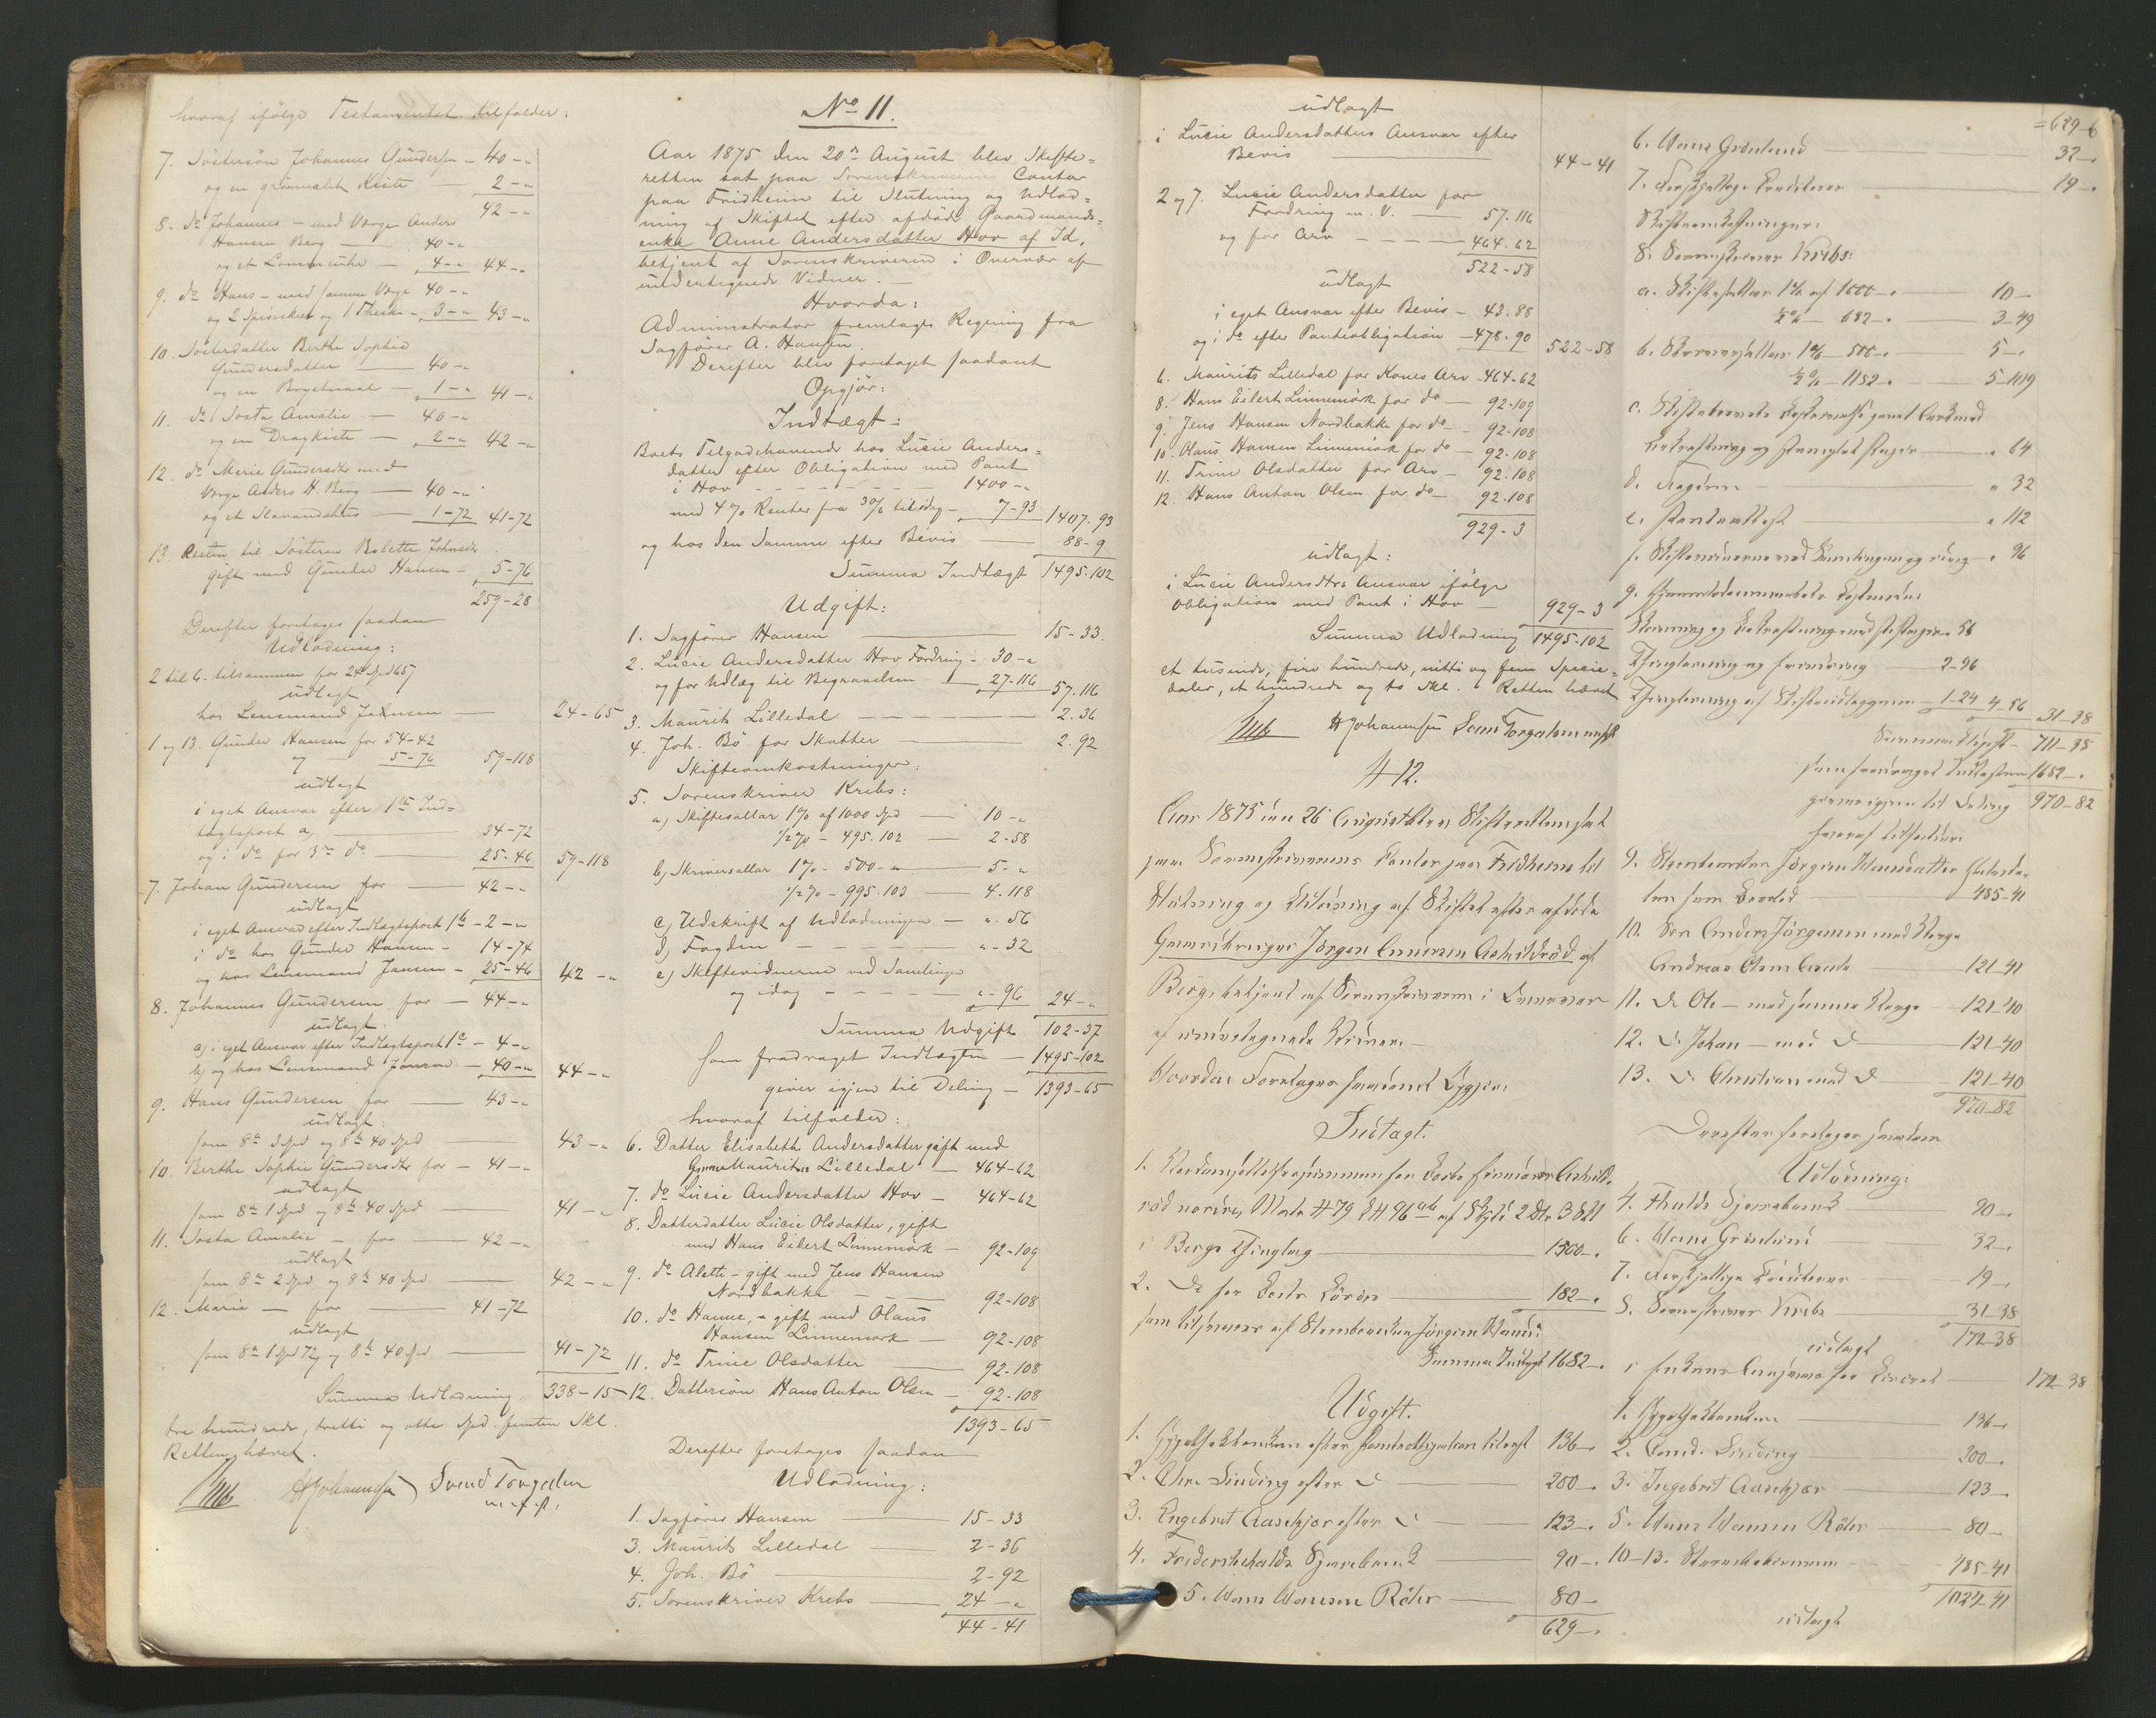 hvoraf ifølge Testamentet tilfalder:
7. Søstersøn Johannes Gundersen - 40 - "
og en grønmalet Kiste - 2 - "
42 - "
8. do Johannes - med Værge Anders
Hansen Berg - 40 - "
og et Lommeuhr - 4 - " 44 - "
9. do Hans - med samme Værge 40 - "
og 2 Spiseskeer og 1 Theske - 3 - " 43 - "
10. Søsterdatter Berthe Sophie
Gundersdatter - 40 - "
og en - 1 - " 41 - "
11. do Josta Amalie - 40 - "
og en Dragkiste - 2 - " 42 - "
12. do Marie Gundersdtr med
Værge Anders H. Berg - 40 - "
og et - 1-72 41-72
13. Resten til Søsteren Bolette Johnsdtr
gift med Gunder Hansen - 5-76
259-28
Derefter foretages saadan
Udlodning:
2 til 6. tilsammen for 24 Spd 65
udlagt
hos Lensmand Jansen - 24-65
1 og 13. Gunder Hansen for 54-42
og 5-76 59-118
udlagt
i eget Ansvar efter 1ste Ind-
tægtspost a) - 34-72
og i do for 3die do - 25-46 59-118
7. Johan Gundersen for - 42 - "
udlagt
i eget Ansvar efter Indtægtspost 1b - 2 - "
i do hos Gunder Hansen - 14-74
og hos Lensmand Jansen - 25-46 42 - "
8. Johannes Gundersen for - 44 - "
udlagt:
a) i eget Ansvar efter Indtægtspost 1c - 4 - "
b) og hos Lensmand Jansen - 40 - " 44 - "
9. Hans Gundersen for - 43 - "
udlagt:
som 8a 3 Spd og 8b 40 Spd - 43 - "
10. Berthe Sophie Gundersdtr for - 41 - "
udlagt
som 8a 1 Spd og 8b 40 Spd - 41 - "
11. Josta Amalie - for - 42 - "
udlagt
som 8a 2 Spd og 8b 40 Spd - 42 - "
12. Marie - for - 41-72
udlagt
som 8a 1 Spd 72 og 8b 40 Spd - 41-72
Summa Udlodning 338-15
tre hundrede, tretti og otte Spd. femten Skl.
Retten hævet.
HJohannesen Svend Torgalsen
m. f. p.
No 11.
Aar 1875 den 20de August blev Skifte-
retten sat paa Sorenskriverens Contor
paa Fridheim til Slutning og Udlod-
ning af Skiftet efter afdøde Gaardmands-
enke Anne Andersdatter Hov af Id,
betjent af Sorenskriveren i Overvær af
undertegnede Vidner. -
Hvorda:
Administrator fremlagde Regning fra
Sagfører A. Hansen.
Derefter blev foretaget saadant
Opgjør:
Indtægt:
Boets Tilgodehavende hos Lucie Anders-
datter efter Obligation med Pant
i Hov - 1400 - "
med 4% Renter fra 30/6 til idag - 7-93 1407.93
og hos den Samme efter Bevis - 88-9
Summa Indtægt 1495.102
Udgift:
1. Sagfører Hansen - 15-33.
2. Lucie Andersdatter Hov Fordring - 30 - "
og for Udlæg til Begravelsen - 27-116 57.116
3. Maurits Lilledal - 2.36
4. Joh. Bø for Skatter - 2.92
Skifteomkostninger:
5. Sorenskriver Krebs:
a) Skiftesallar 1% af 1000 Spd - 10 - "
1/2% - 495.102 - 2-58
b) Skriversallar 1% - 500 - " - 5 - "
1/2% - 995.102 - 4.118
c) Udskrift af Udlodningen - " . 56
d) Fogden - " - 32
e) Skiftevidnerne ved Samlinger
og idag - " - 96 24 - "
Summa Udgift 102-37
som fradraget Indtægten - 1495-102
giver igjen til Deling - 1393-65
hvoraf tilfalder:
6. Datter Elisabeth Andersdatter gift med
Maurits Lilledal - 464-62
7. do Lucie Andersdatter Hov - 464-62
8. Datterdatter Lucie Olsdatter, gift
med Hans Eilert Linnemørk - 92-109
9. do Alette - gift med Jens Hansen
Nordbakke - 92-108
10. do Hanne, - gift med Olaus
Hansen Linnemørk - 92-108
11. do Trine Olsdatter - 92-108
12. Dattersøn Hans Anton Olsen - 92-108
1393-65
Derefter foretages saadan
Udlodning:
1. Sagfører Hansen - 15-33
3. Maurits Lilledal - 2-36
4. Joh. Bø - 2-92
5. Sorenskriver Krebs - 24 - "
44-41
udlagt
i Lucie Andersdatters Ansvar efter
Bevis - 44-41
2 og 7. Lucie Andersdatter for
Fordring m. V. - 57.116
og for Arv - 464.62
522-58
udlagt
i eget Ansvar efter Bevis - 43.88
og i do efter Pantobligation - 478.90 522-58
6. Maurits Lilledal for Kones Arv - 464-62
8. Hans Eilert Linnemørk for do - 92-109
9. Jens Hansen Nordbakke for do - 92-108
10. Olaus Hansen Linnemørk for do - 92.108
11. Trine Olsdatter for Arv - 92.108
12. Hans Anton Olsen for do - 92.108
929-3
udlagt:
i Lucie Andersdtrs Ansvar ifølge
Obligation med Pant i Hov - 929-3
Summa Udlodning 1495-102
et tusinde, fire hundrede, nitti og fem Specie-
daler, et hundrede og to Skl. Retten hævet
HJohannesen Svend Torgalsen m f p
№ 12.
Aar 1875 den 26 August blev Skifteretten sat
paa Sorenskriverens Contor paa Fridheim til
Slutning og Udlodning af Skiftet efter afdøde
Gaardbruger Jørgen Andersen Askildrød af
Berg, betjent af Sorenskriveren i Overvær
af undertegnede Vidner. -
Hvorda: Foretages saadant Opgjør:
Indtægt.
1. for Boets Eiendom Askild-
rød nordre, Matr № 79 L№ 96ab af Skyld 2 Dlr 3 Skl
i Bergs Thinglag - 1500 - "
2. Do for Boets Løsøre - 182 - "
som tilhører af Stervboenken Jørgine
Summa Indtægt 1682 - "
Udgift.
1. Hypothekbanken efter Pantobligation tilrest 136 - "
2. Sinding efter do - 200 - "
3. Engebret Aasekjær efter do - 123 - "
4. Frederikshalds Sparebank - 90 - "
5. Hans Hansen Röder - 80 -
629 - "
= 629 - "
6. Hans Grønlund - 32 - "
7. Forskjellige Kreditorer - 19 - "
Skifteomkostninger:
8. Sorenskriver Krebs:
a. Skiftesallar 1% af 1000 - " - 10 -
1/2% - 682 - " - 3-49
b. Skriversallar 1% - 500 - " - 5 - "
1/2% - 1182 - " - 5-109
c.
Bekræftning og stemplet Papir - " 64
d. Fogden - " 32
e. Pantattest - " 112
f. Skiftevidnerne ved Samlingen og idag - " 96
g.
56
Thinglæsning og - 2-96
Thinglæsning af Skifteudlægget - 1-24 4-56 31-38
Summa Udgift - 711-38
som fradraget Indtægten 1682 - "
giver igjen til Deling 970-82
hvoraf tilfalder:
9. Stervboenken Jørgine Hansdatter
som Boeslod - 485-41
10. Søn Anders Jørgensen med Værge
Andreas Olsen - 121-41
11. do Ole - med samme Værge - 121-40
12. do Johan - med do - 121-40
13. do Christian med do - 121-40
970-82
Derefter foretages saadan
Udlodning:
4. Fhalds Sparebank - 90 - "
6. Hans Grønlund - 32 - "
7. Forskjellige Kreditorer - 19 - "
8. Sorenskriver Krebs - 31-38
172-38
udlagt
i Enkens Ansvar for - 172-38
1. Hypothekbanken - 136 - "
2. Sinding - 200 - "
3. Ingebret Aasekjær - 123 - "
5. Hans Hansen Röder - 80 -
10-13. - 485-41
1024-41
udlagt